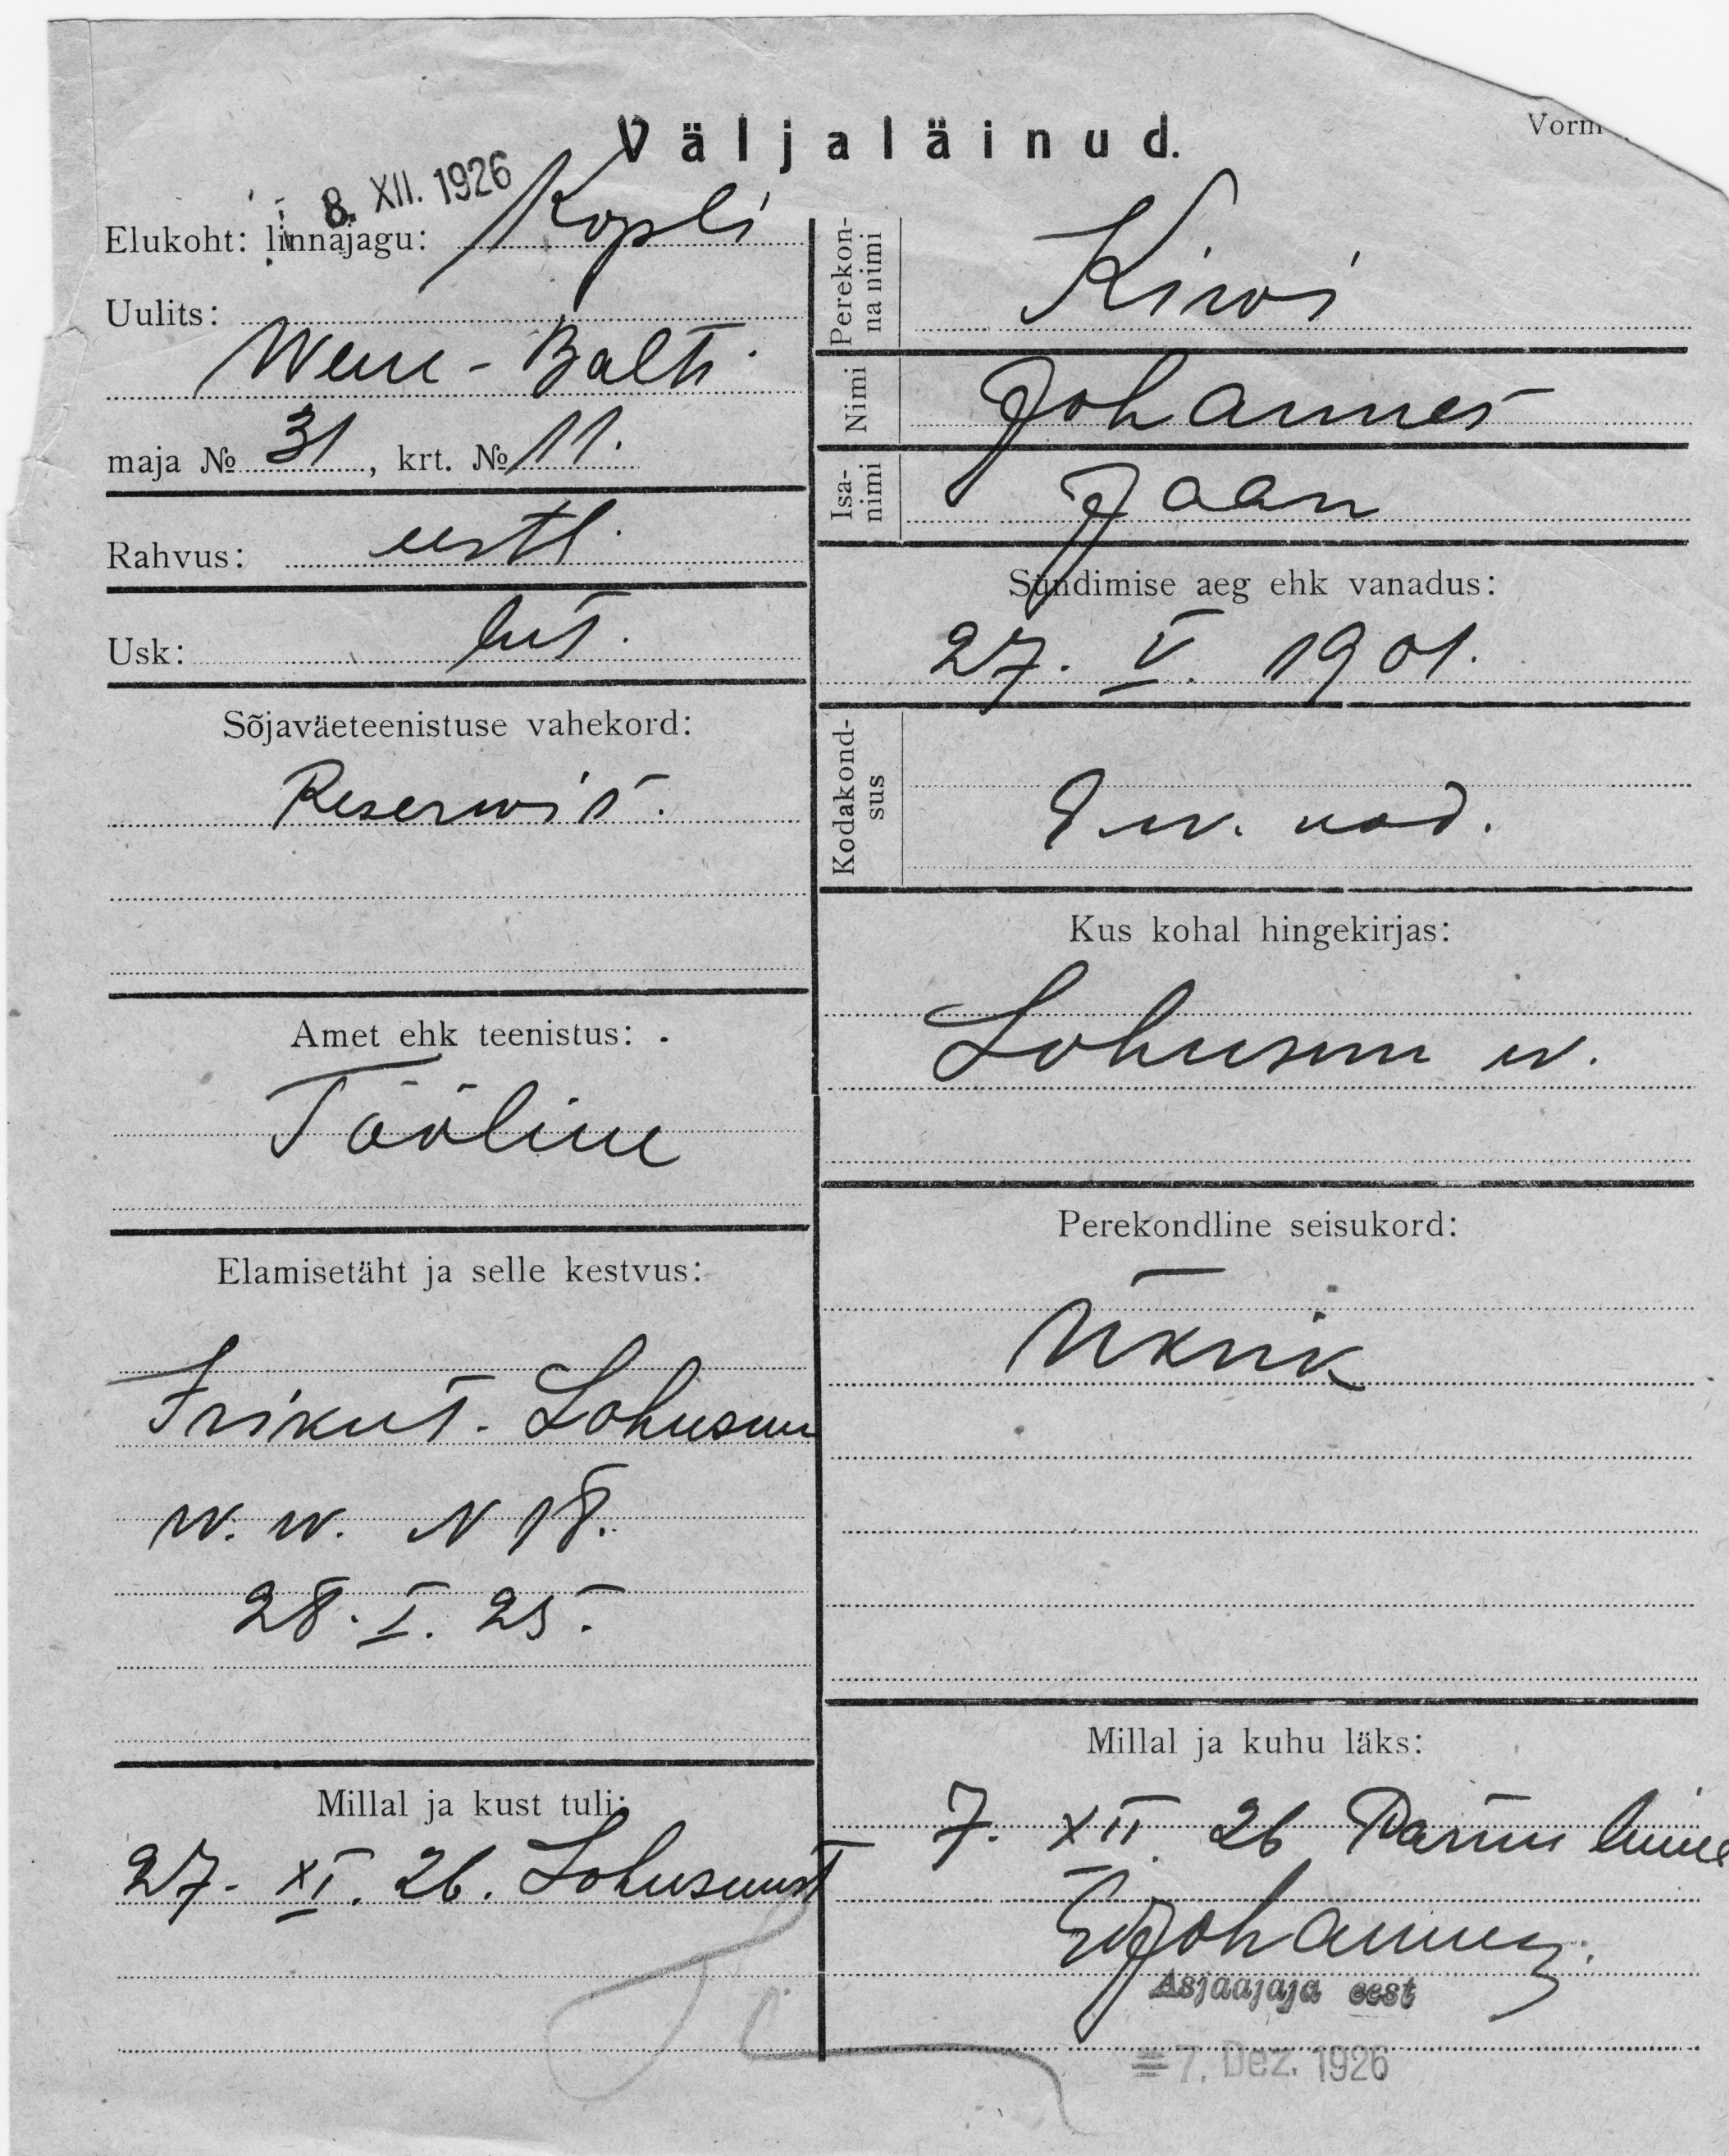 Väljaläinud.
Vorm
8. XII. 1926
Elukoht: linnajagu: Kopli
Uulits:
Wene-Balti
maja № 31, krt. № 11.
Rahvus: eestl.
Usk: lut.
Sõjaväeteenistuse vahekord:
Reserwis.
Amet ehk teenistus:
Tööline
Elamisetäht ja selle kestvus:
Isikut. Lohusuu
w. w. N 18.
28. I. 25.
Millal ja kust tuli:
27. XI. 26. Lohusuust
Perekonna nimi
Kiwi
Nimi
Johannes
Isanimi
Jaan
Sündimise aeg ehk vanadus:
27. V. 1901.
Kodakondsus
E. w. kod.
Kus kohal hingekirjas:
Lohusuu w.
Perekondline seisukord:
Üksik
Millal ja kuhu läks:
7. XII. 26 Pärnu linna
Asjaajaja eest
7. Dez. 1926